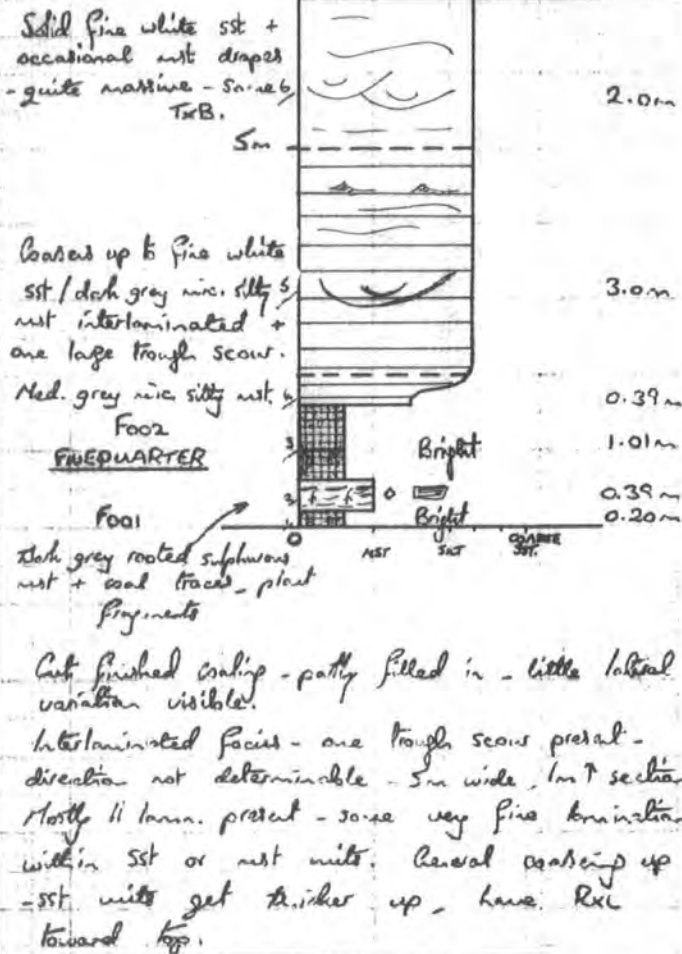 Solid fine white sst +
occasional mst drapes
- quite massive - Some 6
TxB.
2.0m
5m
Coasens up to fine white
sst / dark grey mic. silty 5
mst interlaminated +
one large trough scour.
3.0m
Med. grey mic. silty mst. 4
0.39m
F002
FINEQUARTER
3
Bright
1.01m
2
0.39m
F001
1
Bright
0.20m
O
MST
SILT
COARSE
SST.
Dark grey rooted sulphurous
mst + coal traces - plant
fragments
Cut finished coaling - partly filled in - little lateral
variation visible.
Interlaminated facies - one trough scour present -
direction not determinable - 5m wide, 1m ↑ section
Mostly // lamn. present - some very fine lamination
within sst or mst units. General coarsening up
- sst units get thicker up, have RxL
toward top.